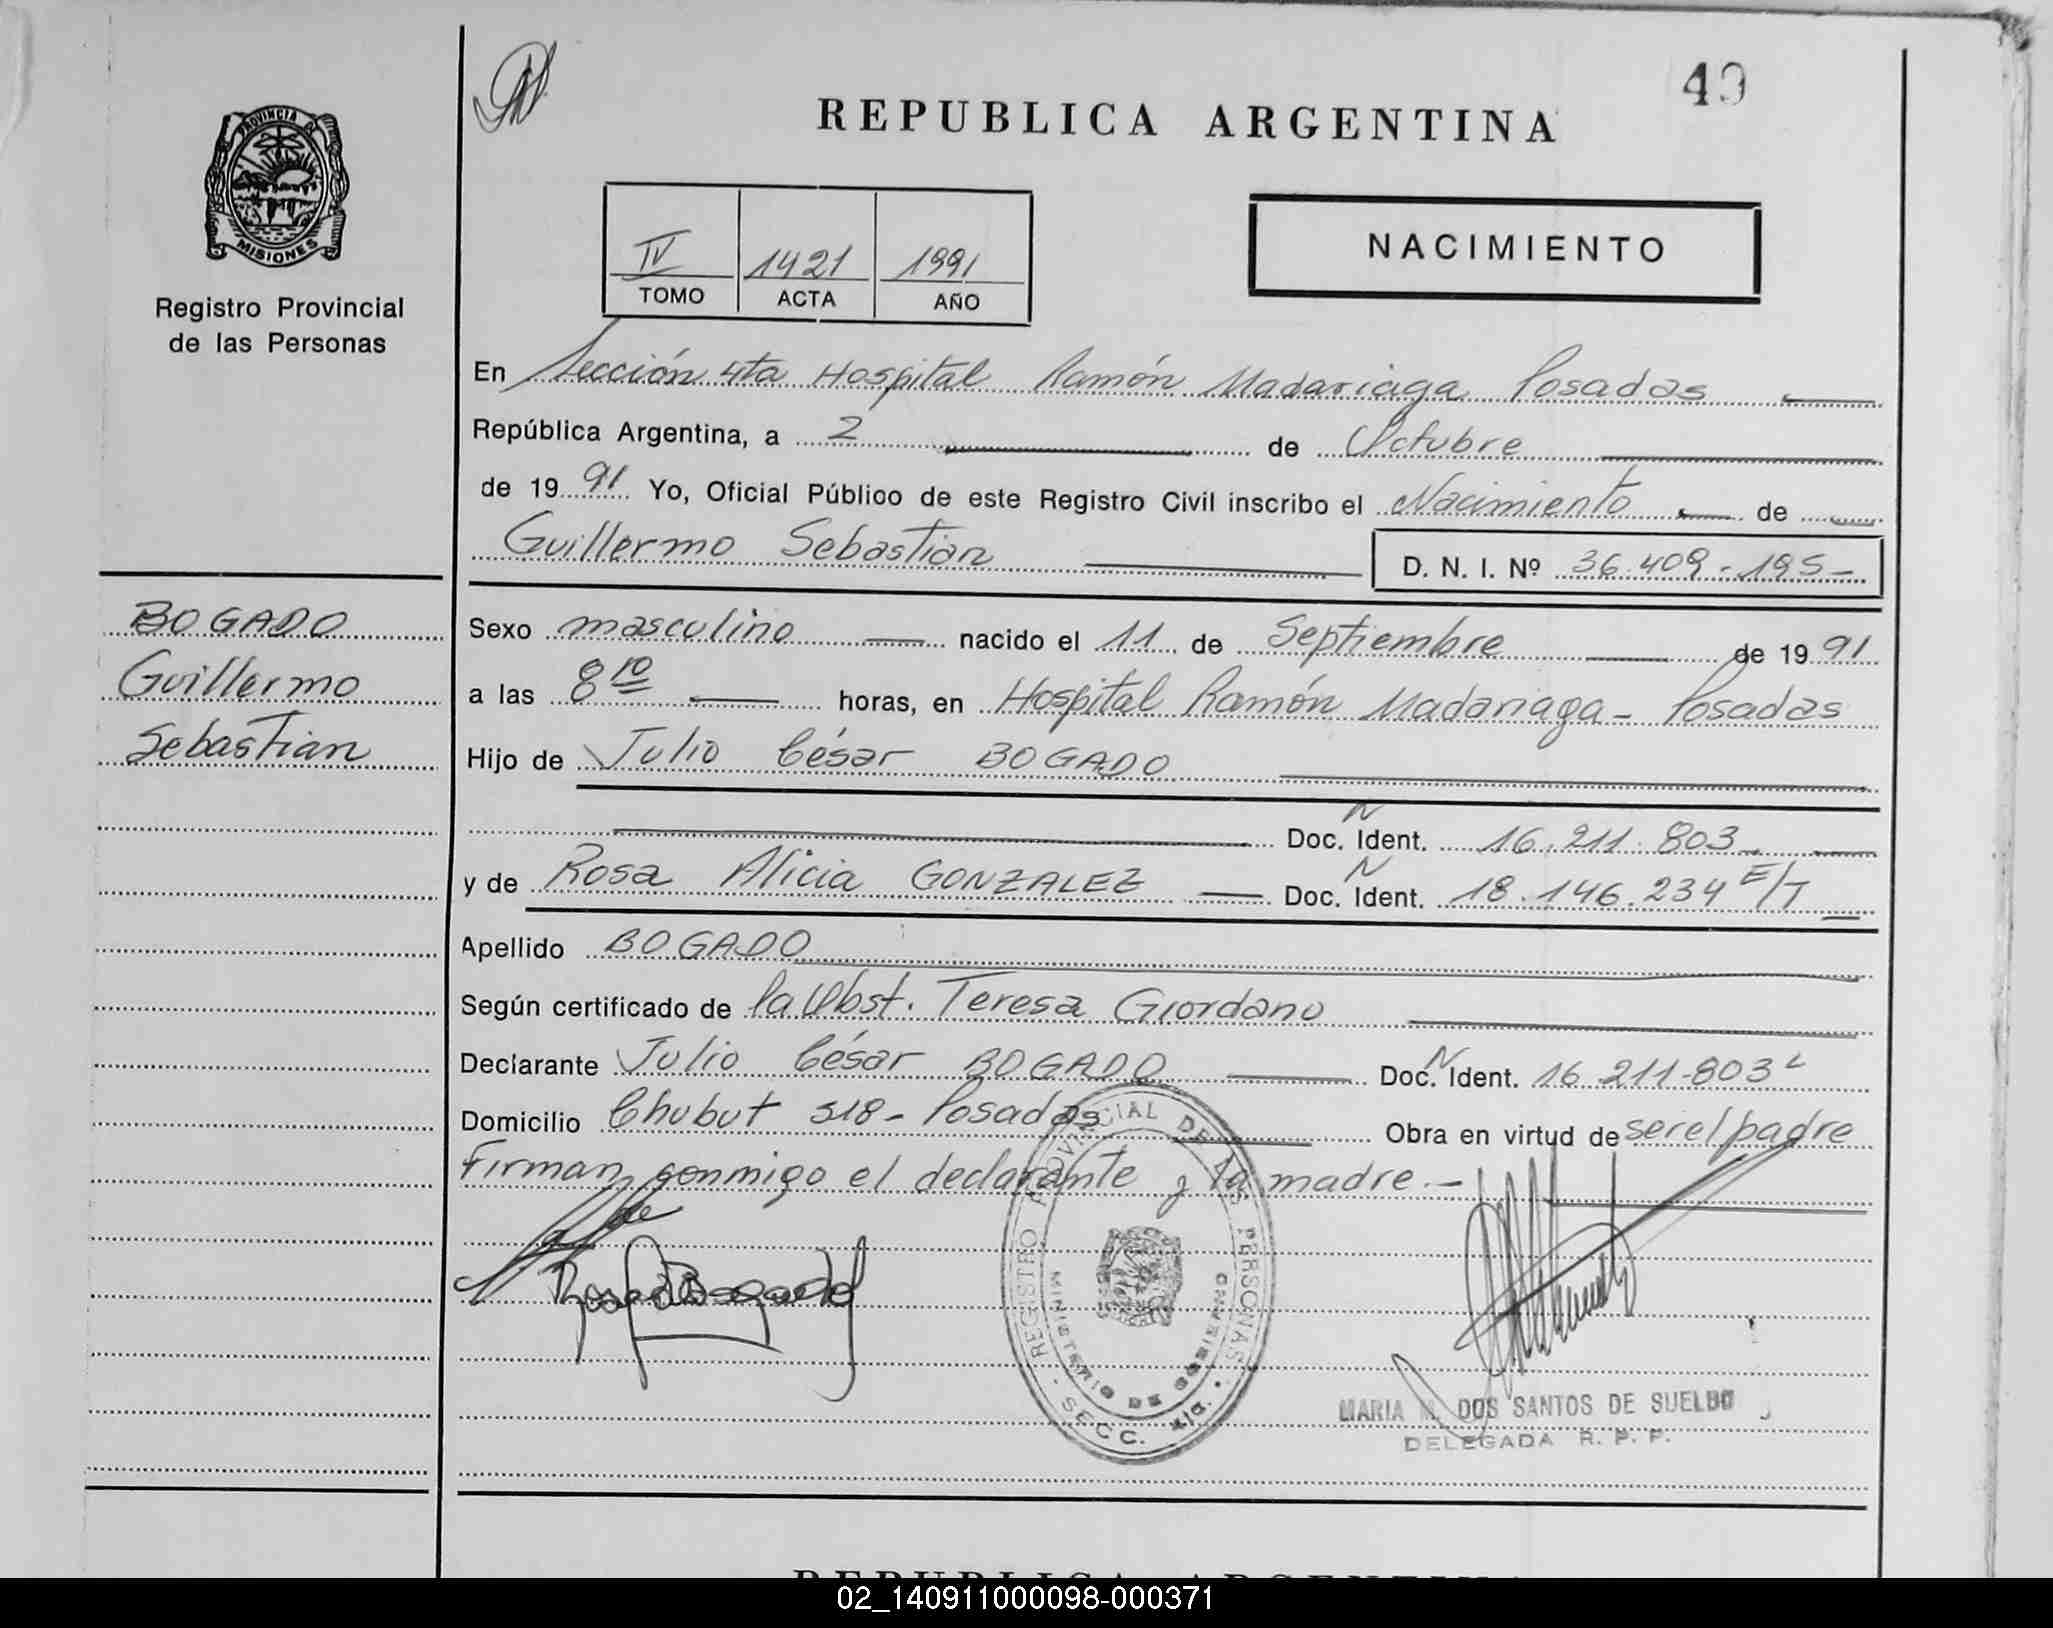 49
REPUBLICA ARGENTINA
PROVINCIA DE
MISIONES
Registro Provincial
de las Personas
IV 1421 1991
TOMO ACTA AÑO
NACIMIENTO
En Sección 4ta Hospital Ramón Madariaga Posadas
República Argentina, a 2 de Octubre
de 1991 Yo, Oficial Público de este Registro Civil inscribo el Nacimiento de
Guillermo Sebastian D. N. I. Nº 36.409.195-
BOGADO
Guillermo
Sebastian
Sexo masculino nacido el 11 de Septiembre de 1991
a las 8 10 horas, en Hospital Ramón Madariaga - Posadas
Hijo de Julio César BOGADO
N
Doc. Ident. 16.211.803
y de Rosa Alicia GONZALEZ Doc. N Ident. 18.146.234 E/T
Apellido BOGADO
Según certificado de la Obst. Teresa Giordano
Declarante Julio César BOGADO Doc. N Ident. 16.211.803
Domicilio Chubut 318 - Posadas Obra en virtud de ser el padre
Firman conmigo el declarante y la madre.-
REGISTRO PROVINCIAL DE LAS PERSONAS
MINISTERIO DE GOBIERNO
SECC. 4ta.
MARIA M. DOS SANTOS DE SUELDO
DELEGADA R. P. P.
REPUBLICA ARGENTINA
02_140911000098-000371